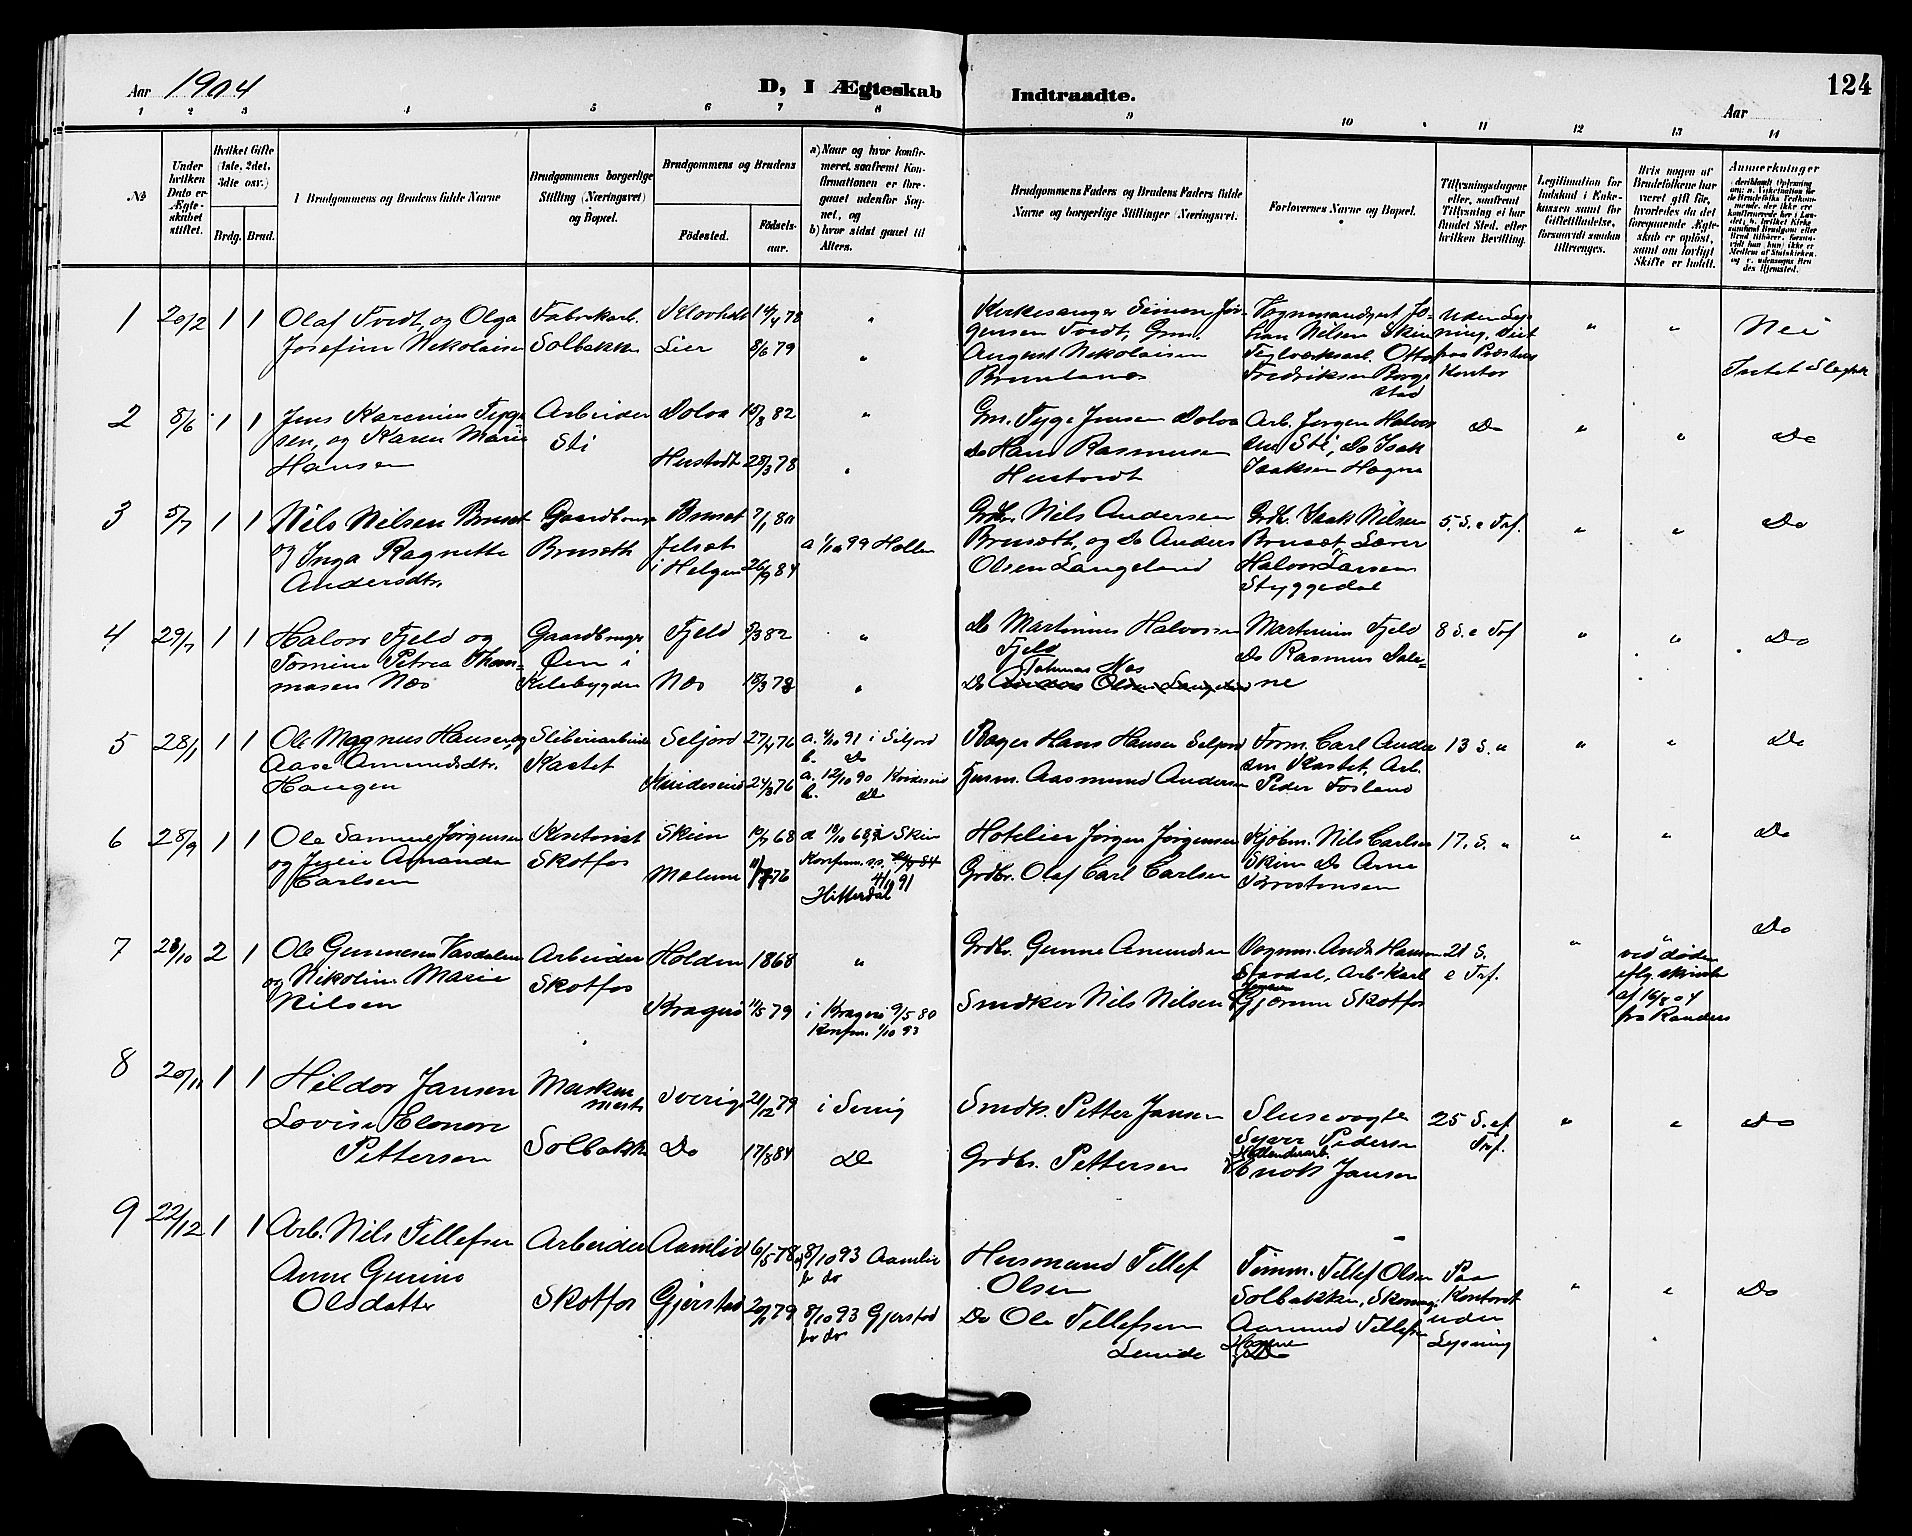 Aar 1904
D, I Ægteskab
Indtraadte.
Aar
124
1 2 3 4 5 6 7 8 9 10 11 12 13 14
No
Under hvilken Dato er Ægteskabet stiftet.
Hvilket Gifte (1ste, 2det, 3die osv.)
Brdg. Brud.
Brudgommens og Brudens fulde Navne
Brudgommens borgerlige Stilling (Næringsvei) og Bopæl.
Brudgommens og Brudens
Födested.
Födselsaar.
a) Naar og hvor konfirmeret, saafremt Konfirmationen er foregaaet udenfor Sognet, og
b) hvor sidst gaaet til Alters.
Brudgommens Faders og Brudens Faders fulde Navne og borgerlige Stillinger (Næringsvei).
Forlovernes Navne og Bopæl.
Tillysningsdagene eller, saafremt Tillysning ei har fundet Sted, efter hvilken Bevilling.
Legitimation for Indskud i Enkekassen samt for Giftetilladelse, forsaavidt saadan tiltrænges.
Hvis nogen af Brudefolkene har været gift för, hvorledes da det foregaaende Ægteskab er oplöst, samt om lovligt Skifte er holdt.
Anmærkninger
1 20/2 1 1
Olaf Tvedt, og Olga
Josefine Nikolaisen
Fabrikarb.
Solbakken
Klovholt 14/4 78 "
Lier 8/6 79 "
Kirkesanger Simon Jörgensen Tvedt, Gm.
August Nikolaisen
Vognmand
Nilsen Skien
Teglverksarb. Otto
Fredriksen Borgestad
uden Lysning, Viet
paa Præstens
Kontor
" "
Nei
Intet Slægtsk
2 8/6 1 1
Jens Karenius Tygesen, og Karen Marie
Hansen
Arbeider
Sti
Dolva 15/8 82 "
Hustvedt 28/3 78 "
Gm. Tyge Jensen Dolva
do Hans Rasmusen
Arb. Jörgen Halvorsen Sti, Do Isak
Isaksen Hogna
Do " " Do
3 5/7 1 1
Nils Nilsen Bruset
og Inga Ragnette
Andersdtr.
Gaardbruger
Bruseth
Bruset 7/1 80
i Helgen 26/9 84
a 1/10 99 Hollen
Grdbr. Nils Andersen
Bruseth, og Do Anders
Olsen Langeland
Grdbr. Isak Nilsen
Bruset, Lærer
Halvor Larsen
Styggedal
5. S. e Trf. " " Do
4 29/7 1 1
Halvor Fjeld og
Tomine Petrea Thommasen Næs
Gaardbruger
Øen i
Kilebygden
Fjeld 5/3 82 "
Næs 15/3 78 "
Do Martinius Halvorsen
Fjeld
Do Tohmas Næs
Martinius Fjeld
Do Rasmus Dalene
8 S. e Trf " " Do
5 28/ 1 1
Ole Magnus Hansen, og
Aase Amundsdtr.
Haugen
Sliberiarbeider
Kastet
Seljord 27/4 76
Kvideseid 24/3 76
a. 4/10 91 i Seljord
b. Do
a. 12/10 90 Kvideseid
b. Do
Bager Hans Hansen Seljord
Husm. Aasmund Andersen
Form. Carl Andersen Kastet, Arb.
Peder Fosland
13 S. " " " Do
6 28/9 1 1
Ole Samuel Jørgensen
og Julie Amanda
Carlsen
Skotfos
Skien 19/7 68
Melum 11/7 76
Skien
Konfirm.
4/10 91
Hitterdal
Hotelier Jørgen Jørgensen
Grdbr. Olaf Carl Carlsen
Kjøbm. Nils Carlsen
Skien Do Arne
Torrestensen
17. S. " " " Do
7 23/10 2 1
Ole Gunnesen Vasdalen
og Nikoline Marie
Nilsen
Arbeider
Skotfos
Holden 1868 "
Kragerø 19/5 79
i Kragerø 9/5 80
Konfirm. 1/10 93
Grdbr. Gunne Amundsen
Smdker Nils Nilsen
Vognm. Ands. Hansen
Stavdal, Arb. Karl
Skotfos
21 S.
e Trf.
"
ved døden
eflg. skiftb.
af 16/8 04
fra Randers
Do
8 20/11 1 1
Hildor Jansen
Lovise Elonore
Pettersen
Maskinmest.
Solbakken
Sverige 21/12 79 i Sverig
Do 17/8 84 Do
Smdk. Petter Jansen
Grdbr. Pettersen
Slusevogte
Syver Pedersen
Hollenderarb.
Enok Jansen
25 S. ef.
Trf.
" " Do
9 22/12 1 1
Arb. Nils Tellefsen
Anne Gurine
Olsdatter
Arbeider
Skotfos
Aamlid 6/5 78
Gjerstad 20/1 79
a) 8/10 93 Aamlid
b do
8/10 93 Gjerstad
b do
Husmand Tellef
Olsen
Do Ole Tellefsen
Lunde
Tømm. Tellef Olsen
Solbakken, Skomag.
Aanund Tellefsen
Do
Paa
Kontoret
uden
Lysning
" " Do